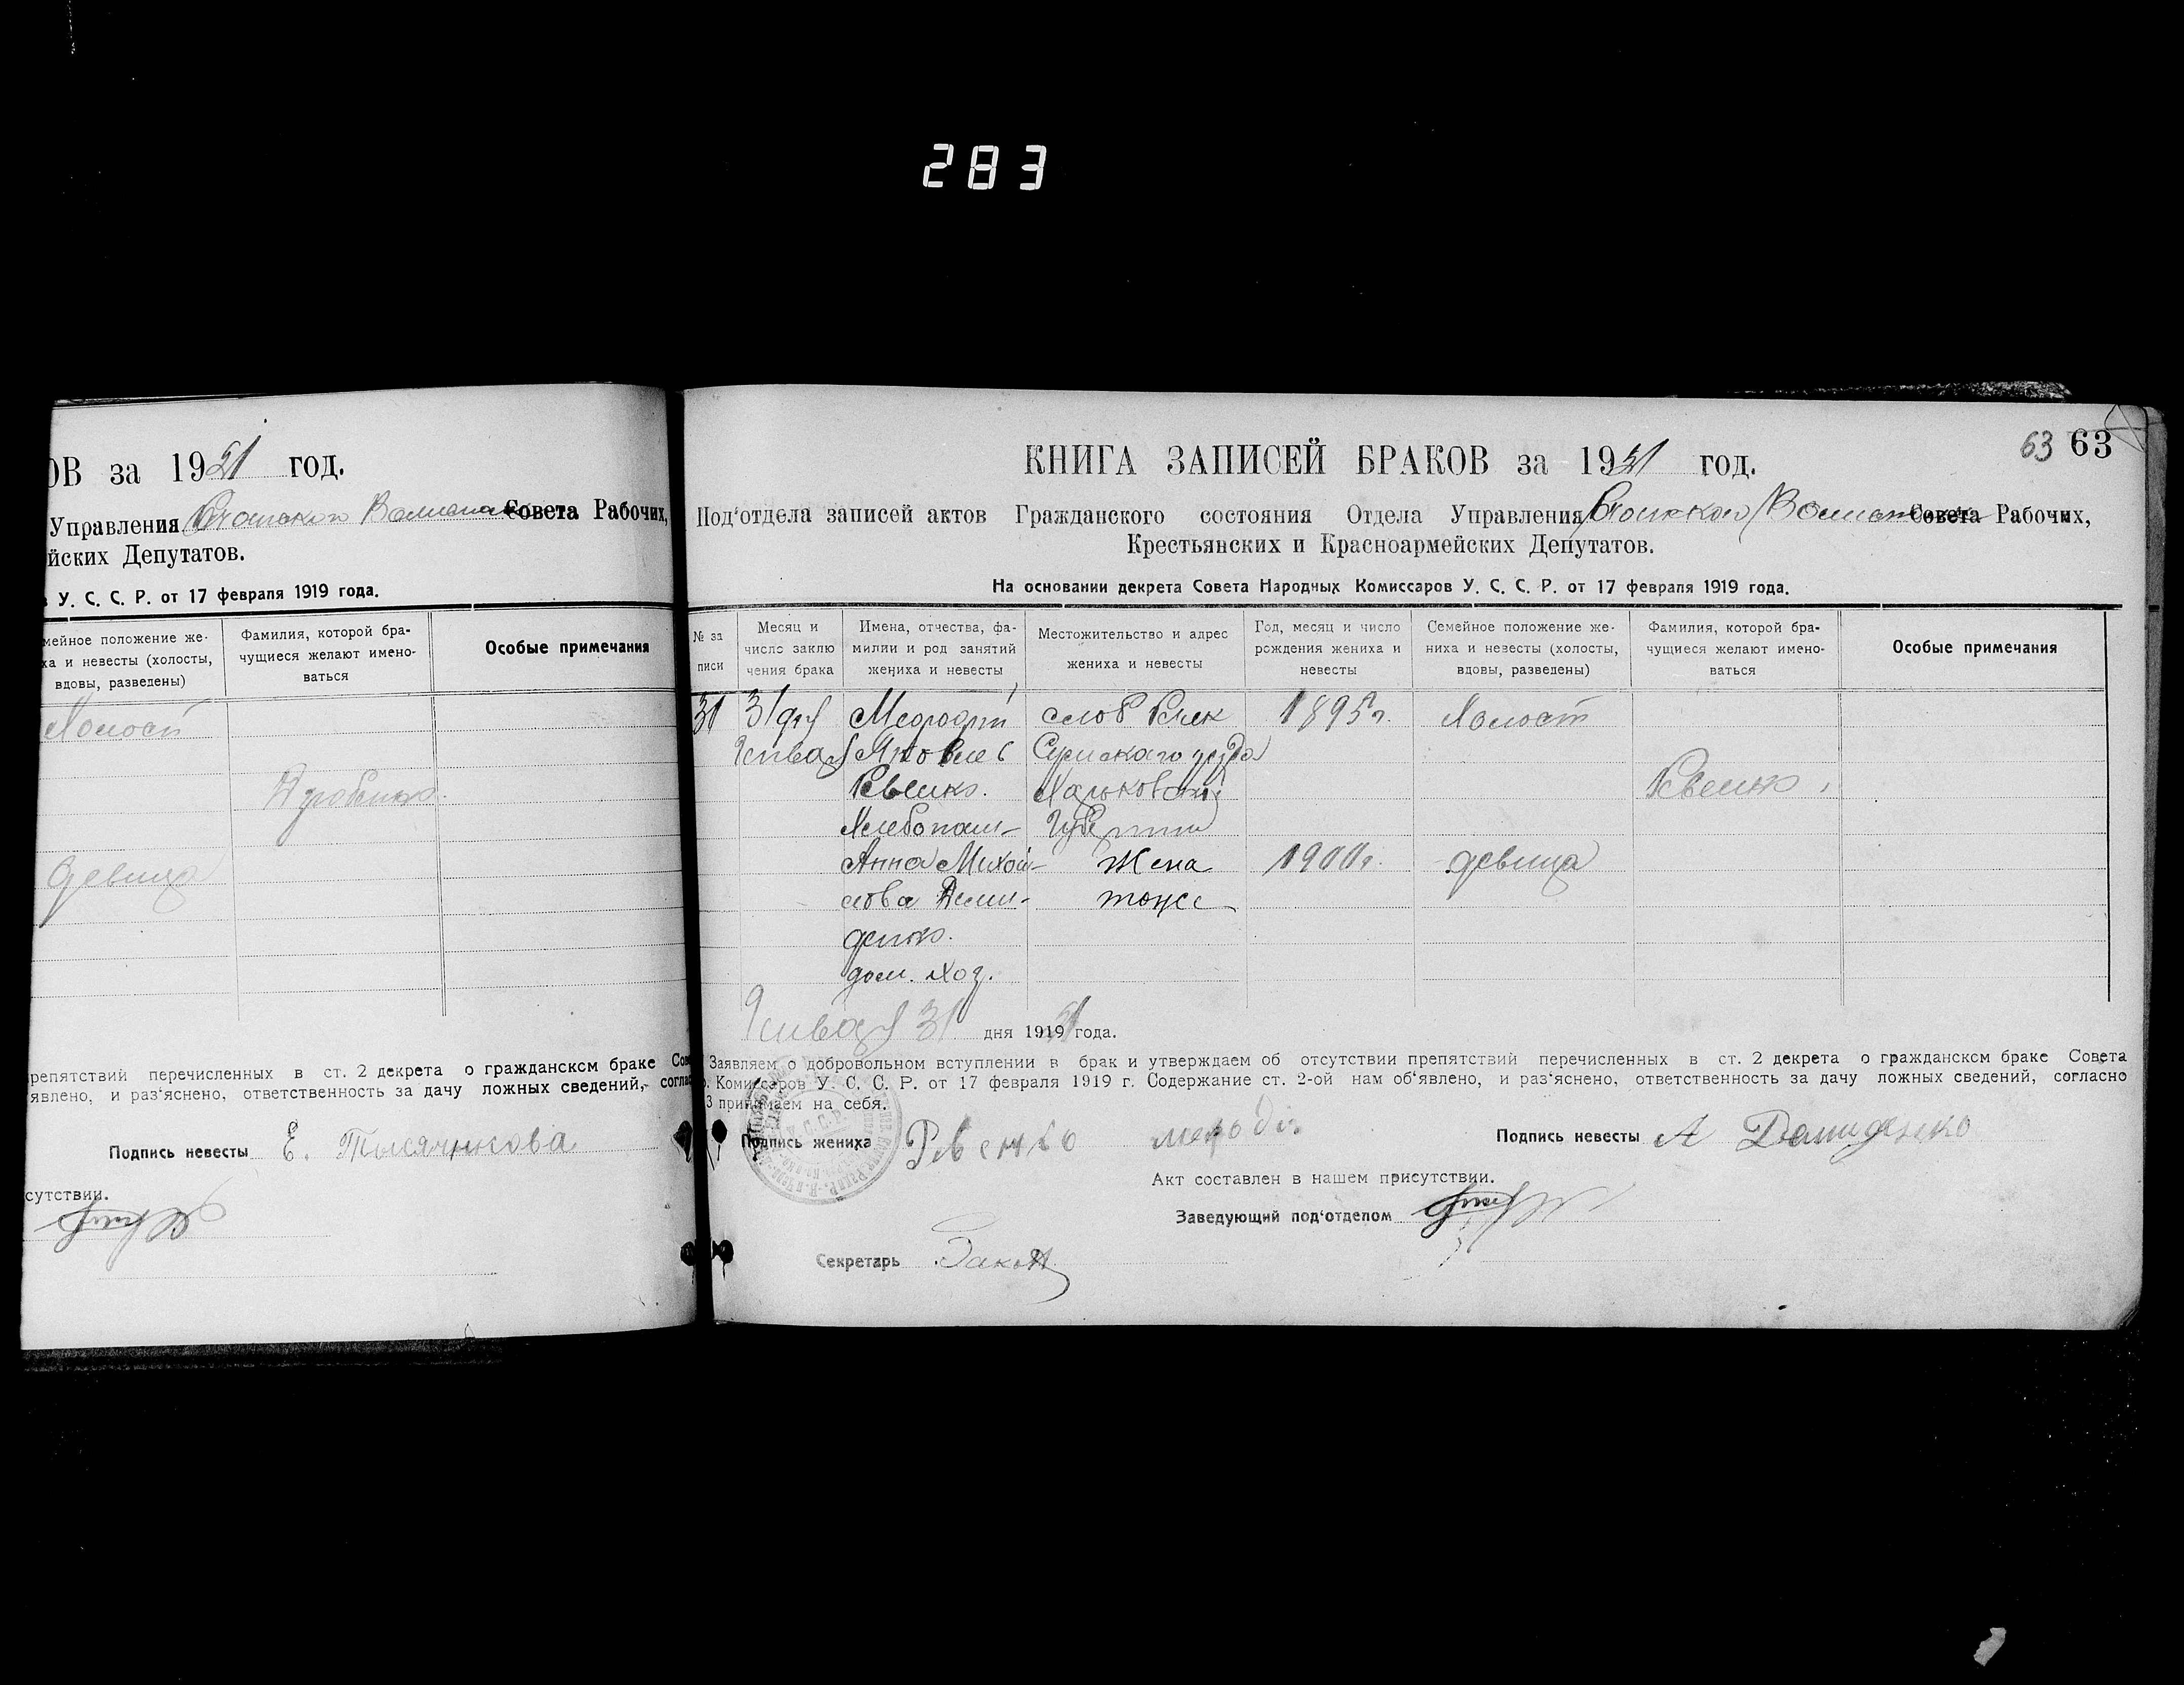 283
ОВ за 1921 год.
Управления Совета Рабочих,
йских Депутатов.
У. С. С. Р. от 17 февраля 1919 года.
мейное положение же-
ха и невесты (холосты,
вдовы, разведены)
Фамилия, которой бра-
чущиеся желают имено-
ваться
Особые примечания
Холост
девица
репятствий перечисленных в ст. 2 декрета о гражданском браке Сов
явлено, и раз'яснено, ответственность за дачу ложных сведений, соглас
Подпись невесты Е. Тысячникова
сутствии.
63 63
КНИГА ЗАПИСЕЙ БРАКОВ за 1921 год.
Под'отдела записей актов Гражданского состояния Отдела Управления Совета Рабочих,
Крестьянских и Красноармейских Депутатов.
На основании декрета Совета Народных Комиссаров У. С. С. Р. от 17 февраля 1919 года.
№ за
писи
Месяц и
число заклю
чения брака
Имена, отчества, фа-
милии и род занятий
жениха и невесты
Местожительство и адрес
жениха и невесты
Год, месяц и число
рождения жениха и
невесты
Семейное положение же-
ниха и невесты (холосты,
вдовы, разведены)
Фамилия, которой бра-
чущиеся желают имено-
ваться
Особые примечания
31 31 Мефодий слоб 1895 г. Холост
Января Яковлев Сумскаго уезда
Ревенко. Харьковской Ревенко
Хлебопаш- Губернии
Анна Михай- Жена 1900 г. девица
лова Деми- тоже
денко.
дом. хоз.
Января 31 дня 1921 года.
Заявляем о добровольном вступлении в брак и утверждаем об отсутствии препятствий перечисленных в ст. 2 декрета о гражданском браке Совета
Комиссаров У. С. С. Р. от 17 февраля 1919 г. Содержание ст. 2-ой нам об'явлено, и раз'яснено, ответственность за дачу ложных сведений, согласно
3 принимаем на себя.
Подпись жениха Ревенко Подпись невесты А Демиденко
Акт составлен в нашем присутствии.
Заведующий под'отделом
Секретарь